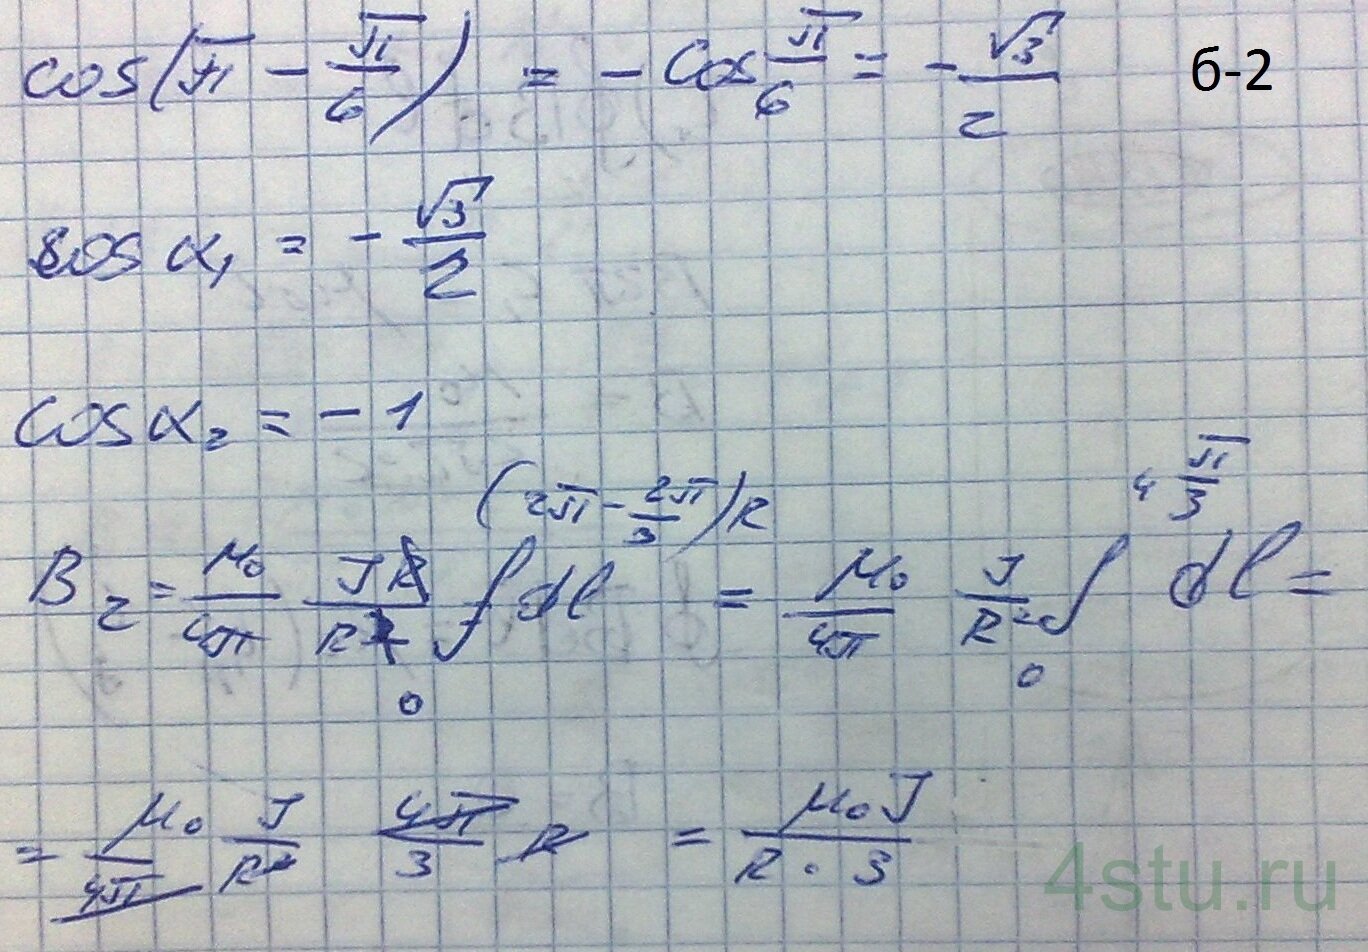 cos(π - π/6) = - cos π/6 = - √3/2
б-2
cos α₁ = - √3/2
cos α₂ = - 1
B₂ = μ₀/4π JR/R² ∫₀^((2π - 2π/3)R) dl = μ₀/4π J/R² ∫₀^(4π/3) dl =
= μ₀/4π J/R² 4π/3 R = μ₀J/R·3
4stu.ru